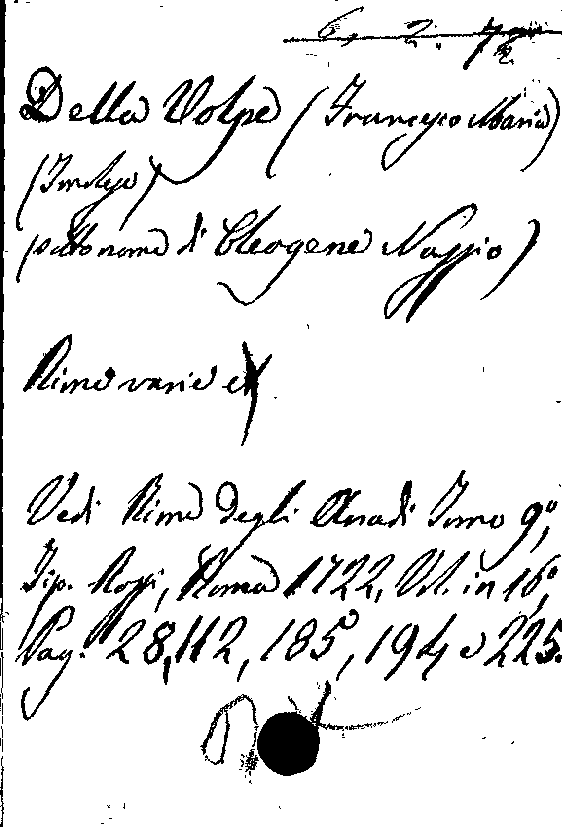 6. 2. 7
Della Volpe (Francesco Maria)
(Imolese)
sotto nome di Cleogene Nassio)
Rime varie
Vedi Rime degli Arcadi Tomo 9º,
Tip. Rossi, Roma 1722, Vol. in 16º,
Pag. 28, 112, 185, 194 e 225.